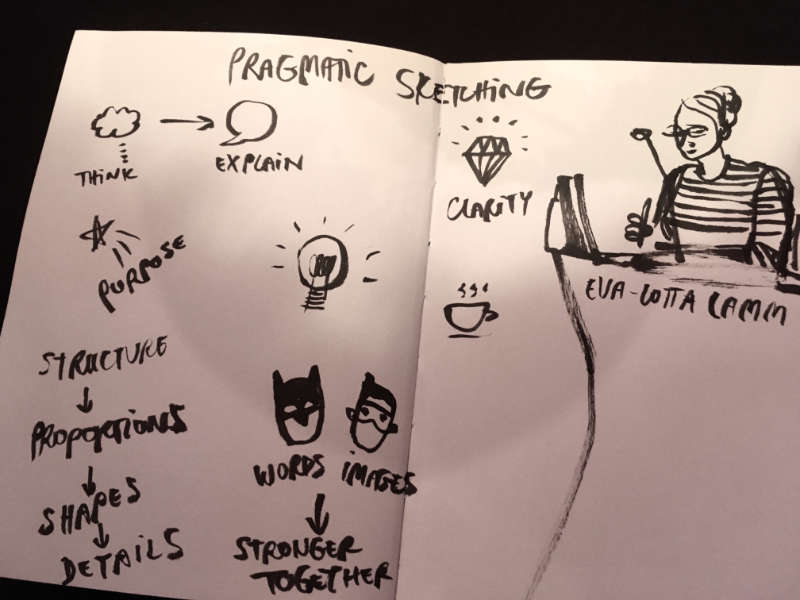 PRAGMATIC SKETCHING
THINK
EXPLAIN
PURPOSE
STRUCTURE
PROPORTIONS
SHAPES
DETAILS
WORDS IMAGES
STRONGER
TOGETHER
CLARITY
EVA-LOTTA LAMM